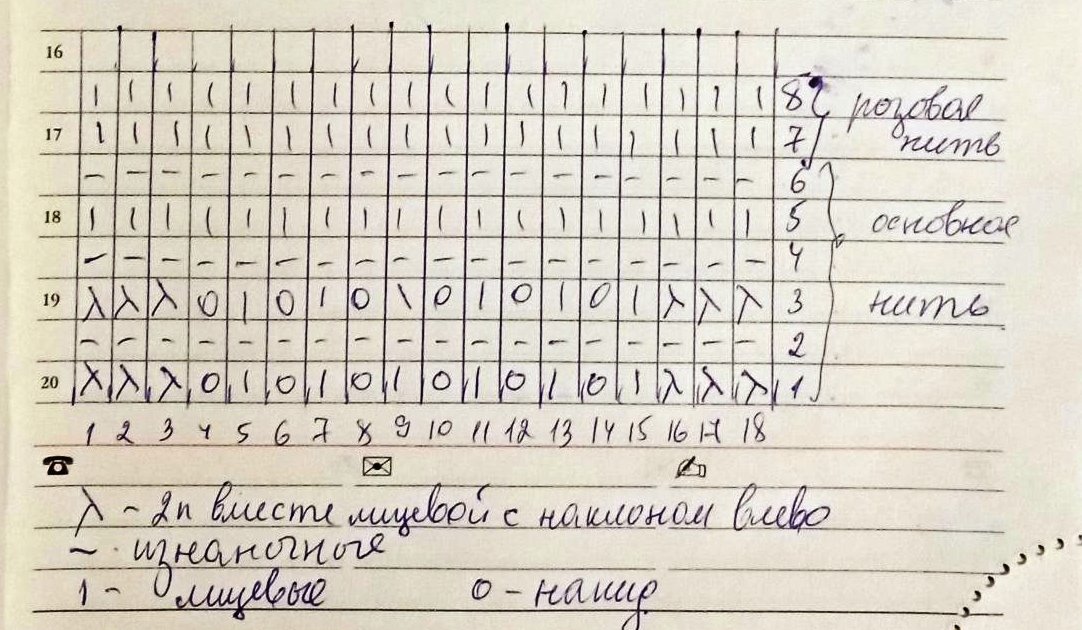 16
| | | | | | | | | | | | | | | | | | 8 розовая
17 | | | | | | | | | | | | | | | | | | 7 нить
– – – – – – – – – – – – – – – – – – 6
18 | | | | | | | | | | | | | | | | | | 5 основная
– – – – – – – – – – – – – – – – – – 4
19 λ λ λ 0 1 0 1 0 1 0 1 0 1 0 1 λ λ λ 3 нить
– – – – – – – – – – – – – – – – – – 2
20 λ λ λ 0 1 0 1 0 1 0 1 0 1 0 1 λ λ λ 1
1 2 3 4 5 6 7 8 9 10 11 12 13 14 15 16 17 18
λ – 2п вместе лицевой с наклоном влево
– - изнаночные
1 – лицевые 0 – накид